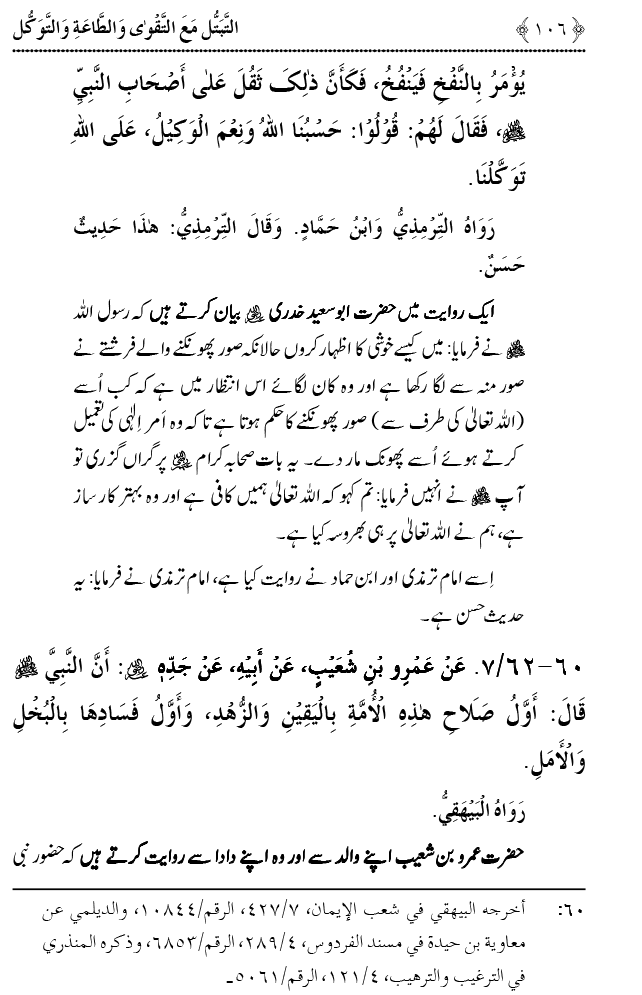 ﴿ ١٠٦ ﴾ التَّبَتُّل مَعَ التَّقْوٰى وَالطَّاعَةِ وَالتَّوَكُّل
يُؤْمَرُ بِالنَّفْخِ فَيَنْفُخُ، فَكَأَنَّ ذٰلِکَ ثَقُلَ عَلٰى أَصْحَابِ النَّبِيِّ
ﷺ، فَقَالَ لَهُمْ: قُوْلُوْا: حَسْبُنَا اللهُ وَنِعْمَ الْوَكِيْلُ، عَلَى اللهِ
تَوَكَّلْنَا.
رَوَاهُ التِّرْمِذِيُّ وَابْنُ حَمَّادٍ. وَقَالَ التِّرْمِذِيُّ: هٰذَا حَدِيْثٌ
حَسَنٌ.
ایک روایت میں حضرت ابو سعید خدری ﷛ بیان کرتے ہیں کہ رسول اللہ
ﷺ نے فرمایا: میں کیسے خوشی کا اظہار کروں حالانکہ صور پھونکنے والے فرشتے نے
صور منہ سے لگا رکھا ہے اور وہ کان لگائے اس انتظار میں ہے کہ کب اُسے
(اللہ تعالیٰ کی طرف سے) صور پھونکنے کا حکم ہوتا ہے تاکہ وہ اَمر اِلٰہی کی تعمیل
کرتے ہوئے اُسے پھونک مار دے۔ یہ بات صحابہ کرام ﷢ پر گراں گزری تو
آپ ﷺ نے انہیں فرمایا: تم کہو کہ اللہ تعالیٰ ہمیں کافی ہے اور وہ بہتر کار ساز
ہے، ہم نے اللہ تعالیٰ پر ہی بھروسہ کیا ہے۔
اِسے امام ترمذی اور ابن حماد نے روایت کیا ہے، امام ترمذی نے فرمایا: یہ
حدیث حسن ہے۔
٦٠-٧/٦٢. عَنْ عَمْرِو بْنِ شُعَيْبٍ، عَنْ أَبِيْهِ، عَنْ جَدِّهٖ ﷛: أَنَّ النَّبِيَّ ﷺ
قَالَ: أَوَّلُ صَلَاحِ هٰذِهِ الْأُمَّةِ بِالْيَقِيْنِ وَالزُّهْدِ، وَأَوَّلُ فَسَادِهَا بِالْبُخْلِ
وَالْأَمَلِ.
رَوَاهُ الْبَيْهَقِيُّ.
حضرت عمرو بن شعیب اپنے والد سے اور وہ اپنے دادا سے روایت کرتے ہیں کہ حضور نبی
٦٠: أخرجه البيهقي في شعب الإيمان، ٤٢٧/٧، الرقم/١٠٨٤٤، والديلمي عن
معاوية بن حيدة في مسند الفردوس، ٢٨٩/٤، الرقم/٦٨٥٣، وذكره المنذري
في الترغيب والترهيب، ١٢١/٤، الرقم/٥٠٦١۔